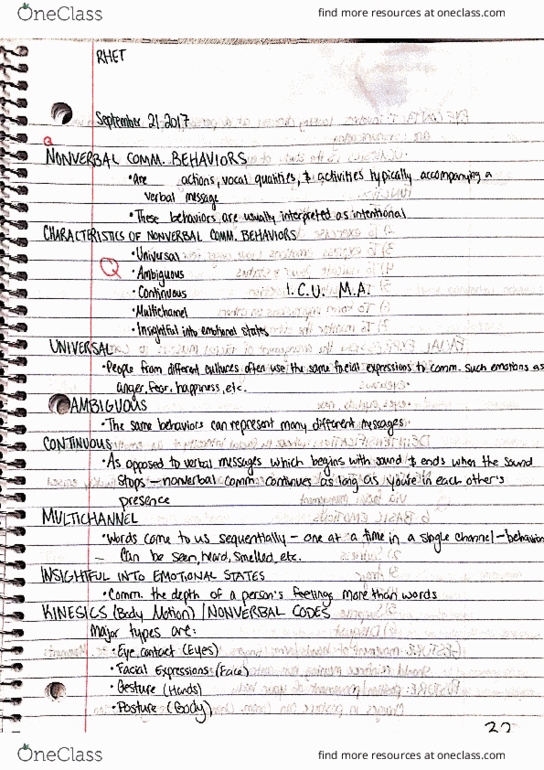 OneClass
find more resources at oneclass.com
RHET
September 21. 2017
Q
NONVERBAL COMM. BEHAVIORS
• are actions, vocal quantities, & activities typically accompanying a
verbal message
• These behaviors are usually interpreted as intentional
CHARACTERISTICS OF NONVERBAL COMM. BEHAVIORS
• Universal
Q
• Ambiguous
• Continuous I.C.U. M.A.
• Multichannel
• Insightful into emotional states
UNIVERSAL
• People from different cultures often use the same facial expressions to comm. such emotions as
anger, fear, happiness, etc.
AMBIGUOUS
• The same behaviors can represent many different messages
CONTINUOUS
• As opposed to verbal messages which begins with sound & ends when the sound
stops – nonverbal comm. continues as long as you're in each other's
presence
MULTICHANNEL
• Words come to us sequentially – one at a time in a single channel – behavior
– Can be seen, heard, smelled, etc.
INSIGHTFUL INTO EMOTIONAL STATES
• Comm. the depth of a person's feelings more than words
KINESICS (Body Motion) | NONVERBAL CODES
Major types are:
• Eye contact (Eyes)
• Facial Expressions (Face)
• Gesture (Hands)
• Posture (Body)
22
OneClass
find more resources at oneclass.com